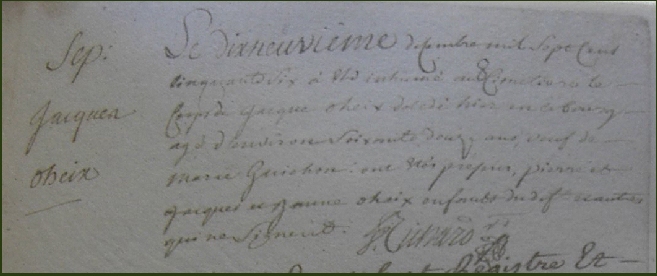 Sep:
Jacques
oheix
Le dixneuvième décembre mil Sept Cent
Cinquante Six a été inhumé au Cimetiere le
Corps de Jacque oheix décédé hier en le bourg
agé d'environ Soixante douze ans, veuf de
Marie Guichon: ont étés présens, pierre et
Jacques et Jeanne oheix enfants du dft et autres
qui ne Signent.
Registre Et